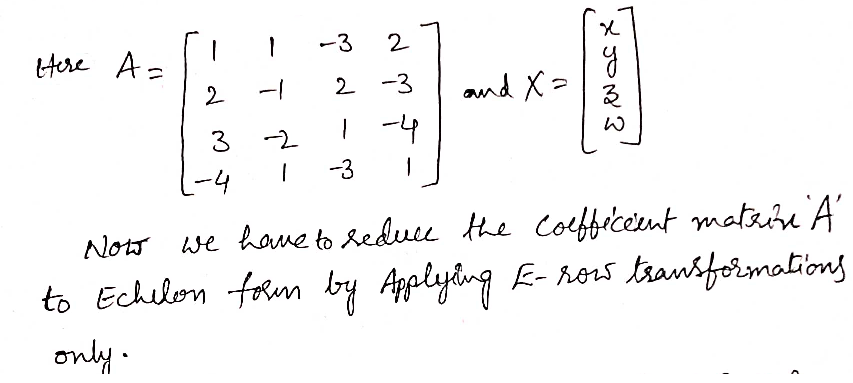 Here A = [ 1 1 -3 2 ; 2 -1 2 -3 ; 3 -2 1 -4 ; -4 1 -3 1 ] and X = [ x ; y ; z ; w ]
Now we have to reduce the coefficient matrix 'A'
to Echelon form by Applying E-row transformations
only.